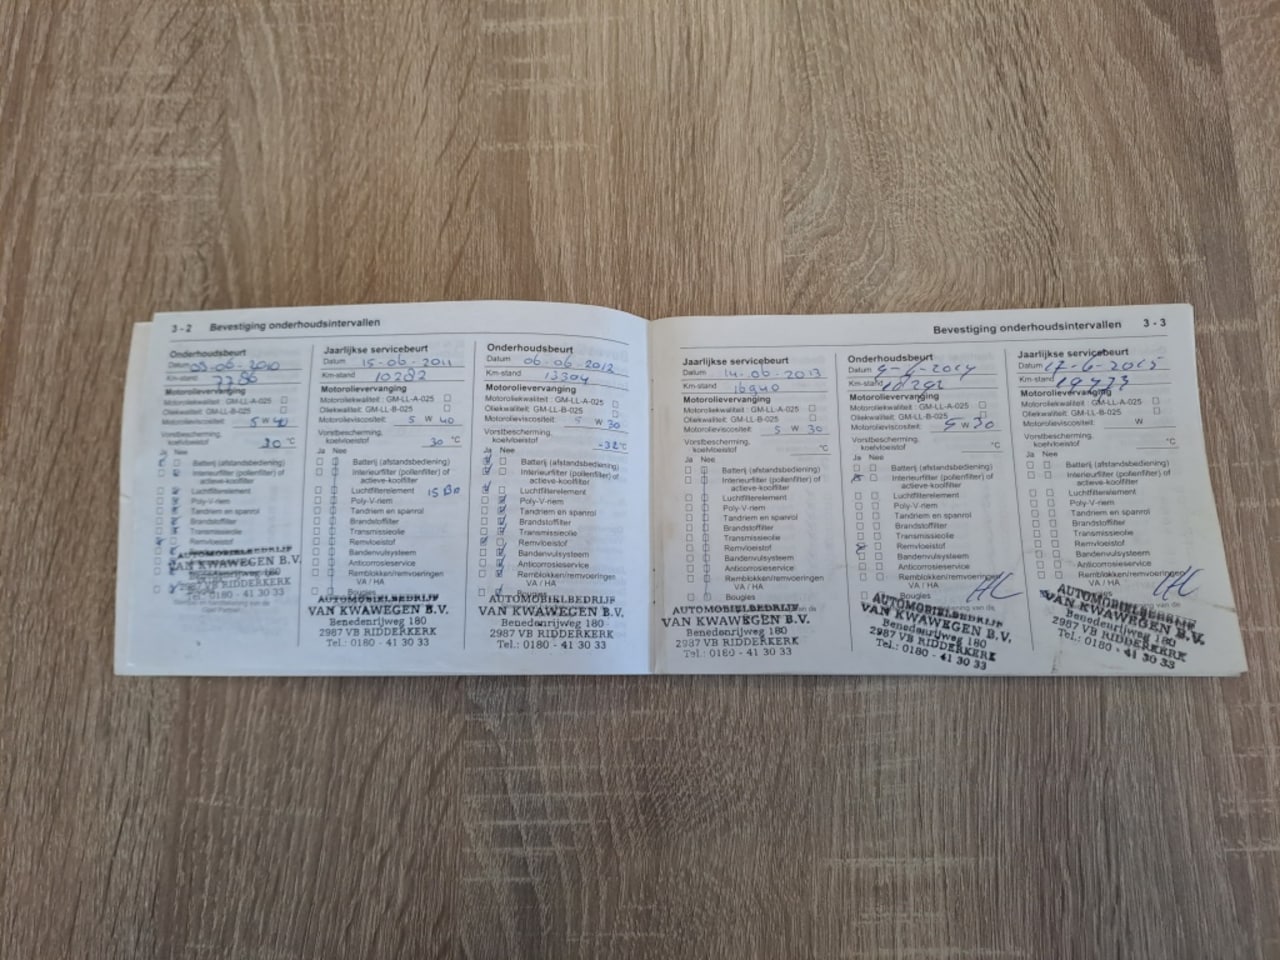 3 - 2 Bevestiging onderhoudsintervallen
Onderhoudsbeurt
Datum 03-06-2010
Km-stand 7786
Motorolievervanging
Motoroliekwaliteit: GM-LL-A-025
Oliekwaliteit: GM-LL-B-025
Motorolieviscositeit: 5 W 40
Vorstbescherming,
koelvloeistof 30 °C
Ja Nee
Batterij (afstandsbediening)
Interieurfilter (pollenfilter) of
actieve-koolfilter
Luchtfilterelement
Poly-V-riem
Tandriem en spanrol
Brandstoffilter
Transmissieolie
Remvloeistof
AUTOMOBIELBEDRIJF
VAN KWAWEGEN B.V.
Benedenrijweg 180
2987 VB RIDDERKERK
Tel.: 0180 - 41 30 33
Jaarlijkse servicebeurt
Datum 15-06-2011
Km-stand 10282
Motorolievervanging
Motoroliekwaliteit: GM-LL-A-025
Oliekwaliteit: GM-LL-B-025
Motorolieviscositeit: 5 W 40
Vorstbescherming,
koelvloeistof 30 °C
Ja Nee
Batterij (afstandsbediening)
Interieurfilter (pollenfilter) of
actieve-koolfilter
Luchtfilterelement
Poly-V-riem
Tandriem en spanrol
Brandstoffilter
Transmissieolie
Remvloeistof
Bandenvulsysteem
Anticorrosieservice
Remblokken/remvoeringen
VA / HA
Bougies
AUTOMOBIELBEDRIJF
VAN KWAWEGEN B.V.
Benedenrijweg 180
2987 VB RIDDERKERK
Tel.: 0180 - 41 30 33
Onderhoudsbeurt
Datum 06-06-2012
Km-stand 13304
Motorolievervanging
Motoroliekwaliteit: GM-LL-A-025
Oliekwaliteit: GM-LL-B-025
Motorolieviscositeit: 5 W 30
Vorstbescherming,
koelvloeistof -32 °C
Ja Nee
Batterij (afstandsbediening)
Interieurfilter (pollenfilter) of
actieve-koolfilter
Luchtfilterelement
Poly-V-riem
Tandriem en spanrol
Brandstoffilter
Transmissieolie
Remvloeistof
Bandenvulsysteem
Anticorrosieservice
Remblokken/remvoeringen
VA / HA
Bougies
AUTOMOBIELBEDRIJF
VAN KWAWEGEN B.V.
Benedenrijweg 180
2987 VB RIDDERKERK
Tel.: 0180 - 41 30 33
Bevestiging onderhoudsintervallen 3 - 3
Jaarlijkse servicebeurt
Datum 14-06-2013
Km-stand 16940
Motorolievervanging
Motoroliekwaliteit: GM-LL-A-025
Oliekwaliteit: GM-LL-B-025
Motorolieviscositeit: 5 W 30
Vorstbescherming,
koelvloeistof °C
Ja Nee
Batterij (afstandsbediening)
Interieurfilter (pollenfilter) of
actieve-koolfilter
Luchtfilterelement
Poly-V-riem
Tandriem en spanrol
Brandstoffilter
Transmissieolie
Remvloeistof
Bandenvulsysteem
Anticorrosieservice
Remblokken/remvoeringen
VA / HA
Bougies
AUTOMOBIELBEDRIJF
VAN KWAWEGEN B.V.
Benedenrijweg 180
2987 VB RIDDERKERK
Tel.: 0180 - 41 30 33
Onderhoudsbeurt
Datum
Km-stand
Motorolievervanging
Motoroliekwaliteit : GM-LL-A-025
Oliekwaliteit: GM-LL-B-025
Motorolieviscositeit: 5 W 30
Vorstbescherming,
koelvloeistof °C
Ja Nee
Batterij (afstandsbediening)
Interieurfilter (pollenfilter) of
actieve-koolfilter
Luchtfilterelement
Poly-V-riem
Tandriem en spanrol
Brandstoffilter
Transmissieolie
Remvloeistof
Bandenvulsysteem
Anticorrosieservice
Remblokken/remvoeringen
VA / HA
AUTOMOBIELBEDRIJF
VAN KWAWEGEN B.V.
Benedenrijweg 180
2987 VB RIDDERKERK
Tel.: 0180 - 41 30 33
Jaarlijkse servicebeurt
Datum 17-6-2015
Km-stand
Motorolievervanging
Motoroliekwaliteit : GM-LL-A-025
Oliekwaliteit: GM-LL-B-025
Motorolieviscositeit: W
Vorstbescherming,
koelvloeistof °C
Ja Nee
Batterij (afstandsbediening)
Interieurfilter (pollenfilter) of
actieve-koolfilter
Luchtfilterelement
Poly-V-riem
Tandriem en spanrol
Brandstoffilter
Transmissieolie
Remvloeistof
Bandenvulsysteem
Anticorrosieservice
Remblokken/remvoeringen
VA / HA
AUTOMOBIELBEDRIJF
VAN KWAWEGEN B.V.
Benedenrijweg 180
2987 VB RIDDERKERK
Tel.: 0180 - 41 30 33